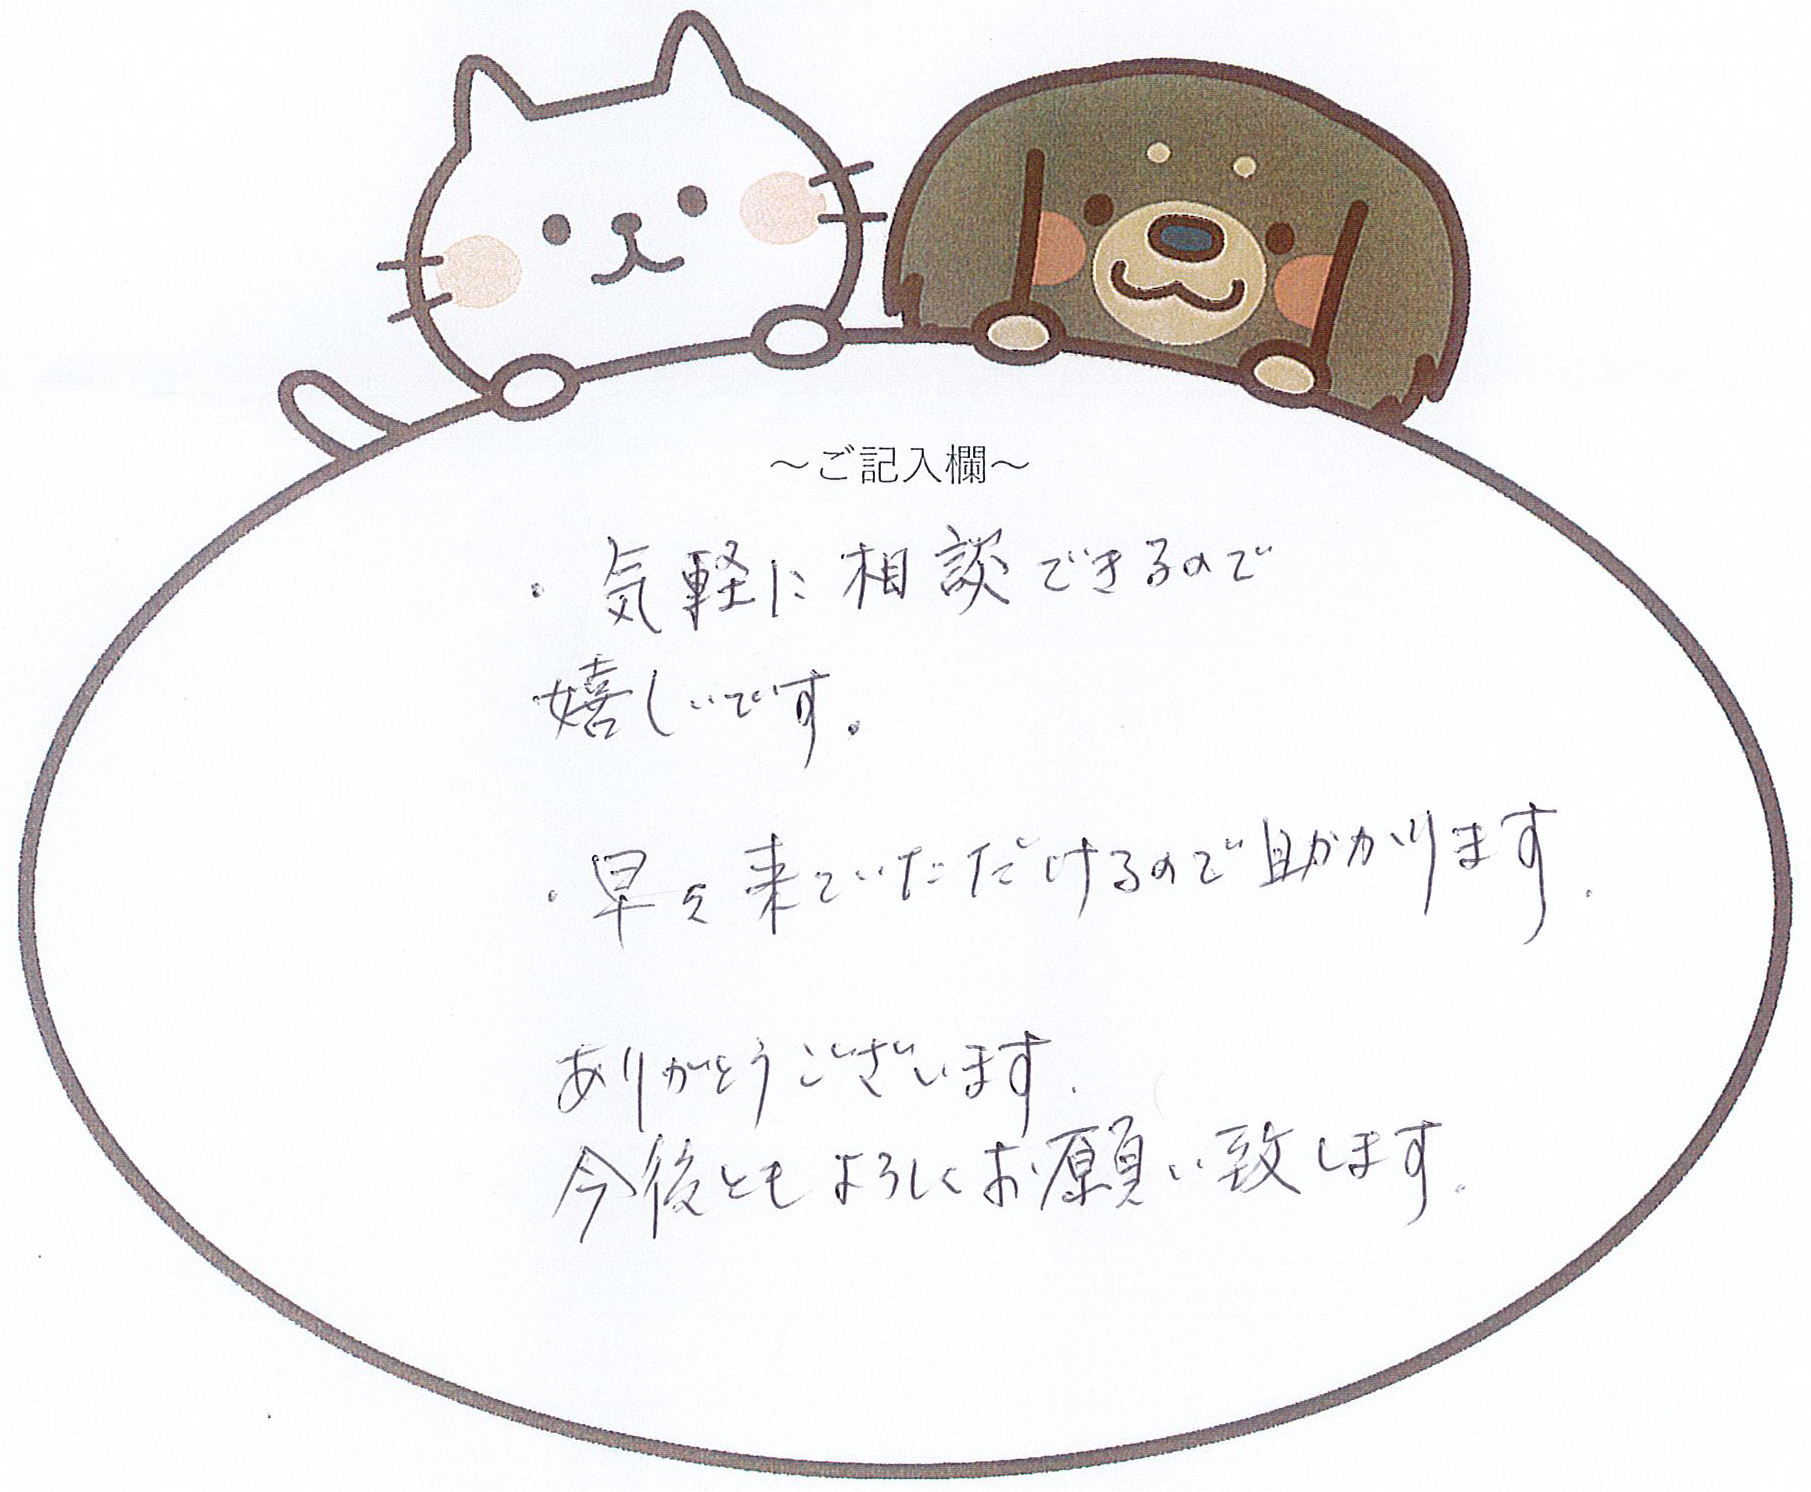 ～ご記入欄～
・気軽に相談できるので
嬉しいです。
・早々来ていただけるので助かります.
ありがとうございます.
今後ともよろしくお願い致します.